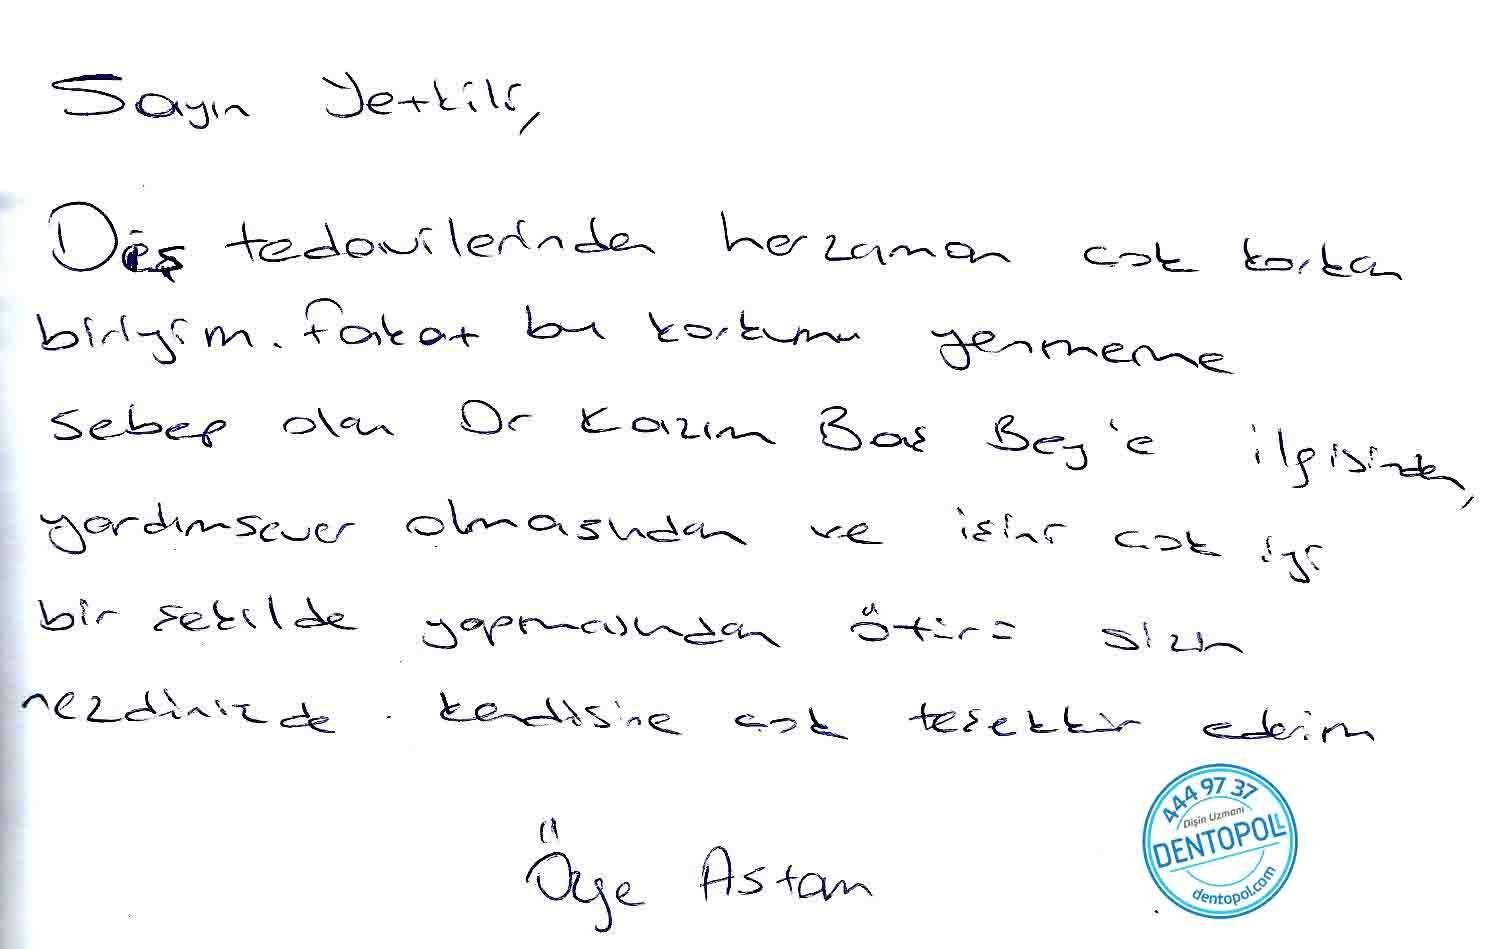 Sayın Yetkili,
Diş tedavilerinden herzaman çok korkan
biriyim. Fakat bu korkumu yenmeme
sebep olan Dr Kazım Baş Bey'e ilgisinden,
yardımsever olmasından ve işini çok iyi
bir şekilde yapmasından ötürü sizin
nezdinizde kendisine çok teşekkür ederim
Astan
444 97 37
Dişin Uzmanı
DENTOPOL
dentopol.com